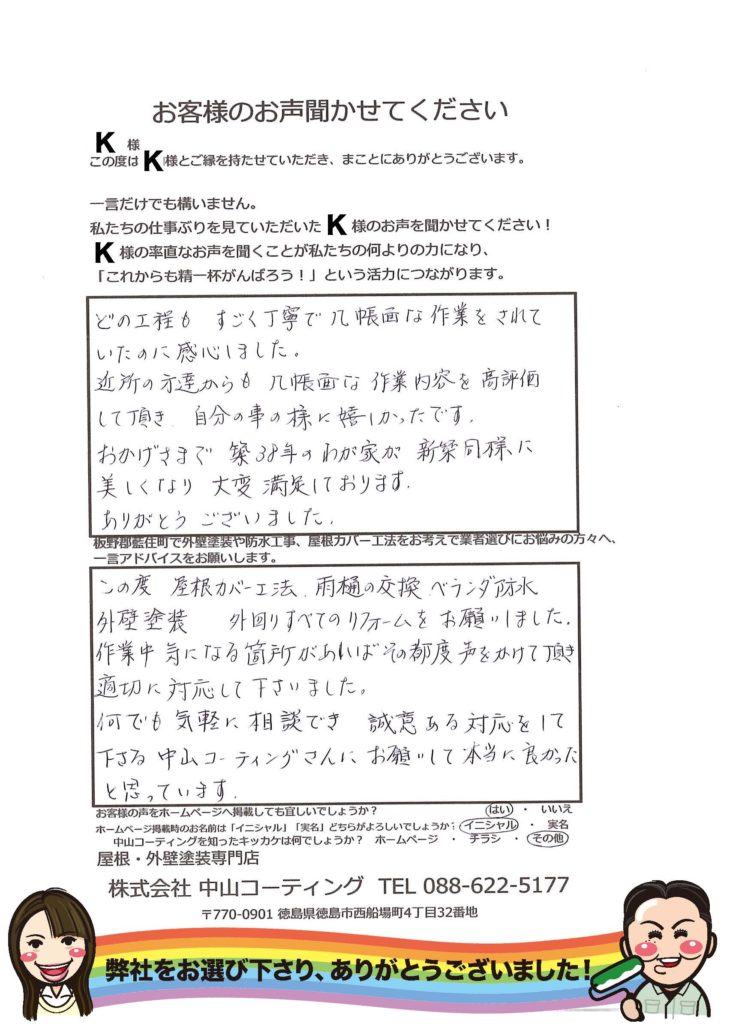 お客様のお声聞かせてください
K 様
この度は K 様とご縁を持たせていただき、まことにありがとうございます。
一言だけでも構いません。
私たちの仕事ぶりを見ていただいた K 様のお声を聞かせてください！
K 様の率直なお声を聞くことが私たちの何よりの力になり、
「これからも精一杯がんばろう！」という活力につながります。
どの工程も すごく丁寧で 几帳面な作業をされて
いたのに感心しました。
近所の方達からも 几帳面な 作業内容を 高評価
して頂き 自分の事の様に嬉しかったです.
おかげさまで 築38年のわが家が 新築同様に
美しくなり 大変 満足しております.
ありがとう ございました.
板野郡藍住町で外壁塗装や防水工事、屋根カバー工法をお考えで業者選びにお悩みの方々へ、
一言アドバイスをお願いします。
この度 屋根カバー工法. 雨樋の交換 ベランダ防水
外壁塗装 外回りすべてのリフォームを お願いしました.
作業中 気になる箇所があればその都度 声をかけて頂き
適切に対応して下さいました。
何でも 気軽に 相談でき 誠意ある対応をして
下さる 中山コーティングさんに お願いして本当に良かった
と思っています.
お客様の声をホームページへ掲載しても宜しいでしょうか？ はい ・ いいえ
ホームページ掲載時のお名前は「イニシャル」「実名」どちらがよろしいでしょうか？ イニシャル ・ 実名
中山コーティングを知ったキッカケは何でしょうか？ ホームページ ・ チラシ ・ その他
屋根・外壁塗装専門店
株式会社 中山コーティング TEL 088-622-5177
〒770-0901 徳島県徳島市西船場町4丁目32番地
弊社をお選び下さり、ありがとうございました！